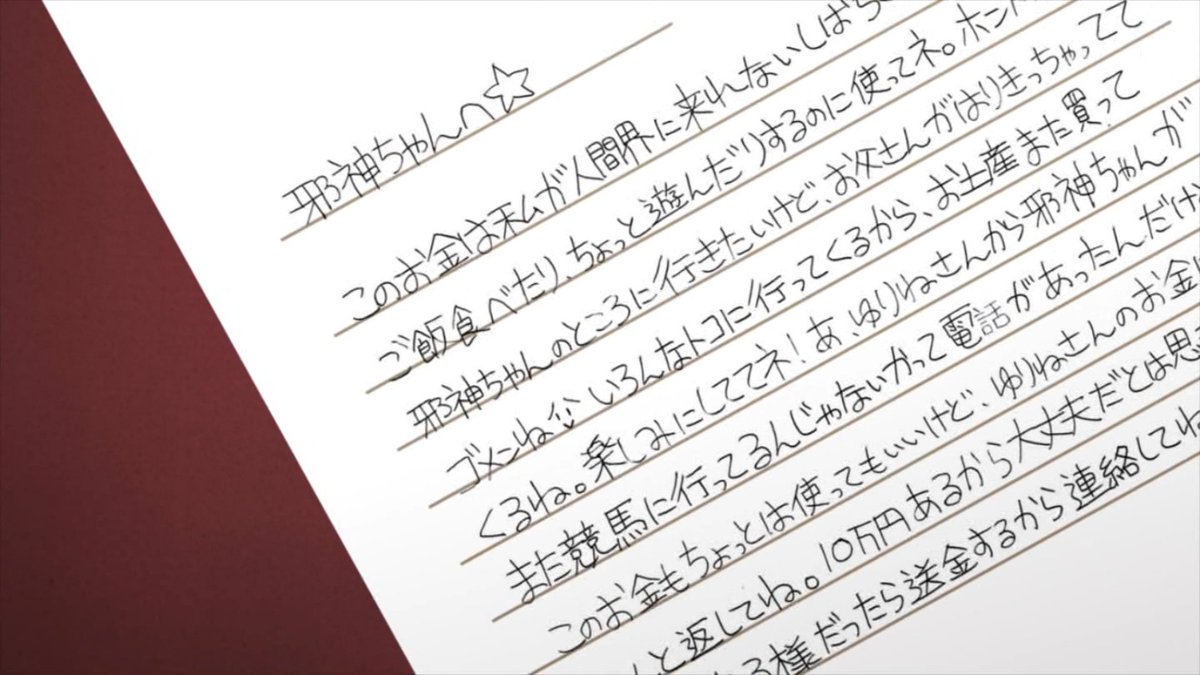 邪神ちゃんへ☆
このお金は私が人間界に来れないしばら
ご飯食べたり、ちょっと遊んだりするのに使ってネ。ホン
邪神ちゃんのところに行きたいけど、お父さんがはりきっちゃってて
ゴメンね いろんなトコに行ってくるから、お土産また買って
くるね。楽しみにしててネ!あ、ゆりねさんから邪神ちゃんが
また競馬に行ってるんじゃないかって電話があったんだけ
このお金もちょっとは使ってもいいけど、ゆりねさんのお金
んと返してね。10万円あるから大丈夫だとは思
る様だったら送金するから連絡してね